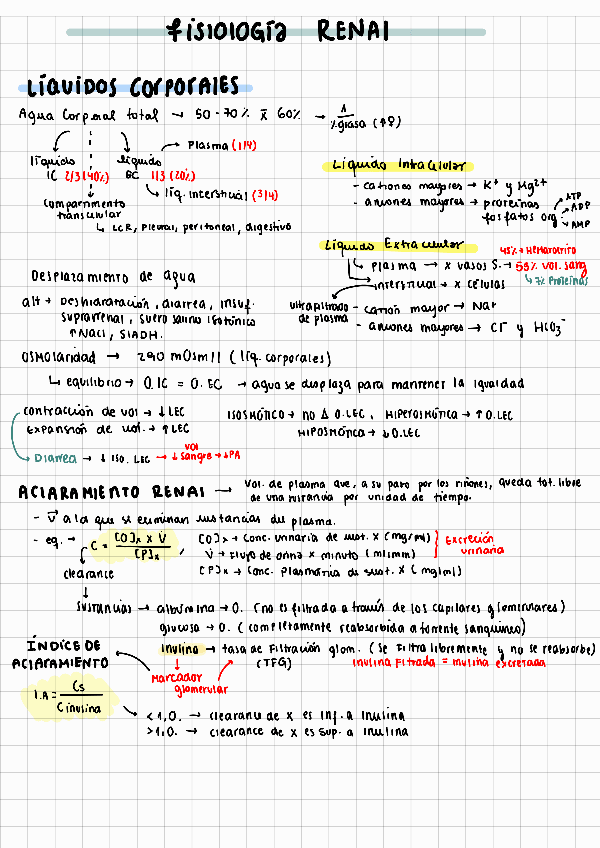 FISIOLOGÍA RENAL
LÍQUIDOS CORPORALES
Agua Corporal total → 50-70% x̄ 60% → 1/%grasa (↑♀)
líquido IC 2/3 (40%)
líquido EC 1/3 (20%)
→ Plasma (1/4)
→ líq. intersticial (3/4)
compartimento
transcelular
↳ LCR, pleural, peritoneal, digestivo
Líquido Intracelular
- cationes mayores → K⁺ y Mg²⁺
- aniones mayores → proteínas
fosfatos org. → ATP
→ ADP
→ AMP
Líquido Extracelular
45% → Hematocrito
↳ plasma → x vasos S. → 55% vol. sang
↳ 7% Proteínas
→ intersticial → x células
ultrafiltrado
de plasma
- catión mayor → Na⁺
- aniones mayores → Cl⁻ y HCO₃⁻
Desplazamiento de agua
alt → Deshidratación, diarrea, insuf.
suprarrenal, suero salino isotónico
↑NaCl, SIADH.
OSMOlaridad → 290 mOsm/l (líq. corporales)
↳ equilibrio → O.IC = O.EC → agua se desplaza para mantener la igualdad
contracción de vol → ↓LEC
Expansión de vol. → ↑LEC
ISOSMÓTICO → no Δ O.LEC, HIPEROSMÓTICA → ↑O.LEC
HIPOSMÓTICA → ↓O.LEC
→ Diarrea → ↓ ISO. LEC → ↓ vol sangre → ↓PA
ACLARAMIENTO RENAL → Vol. de plasma que, a su paso por los riñones, queda tot. libre
de una sustancia por unidad de tiempo.
- V̄ a la que se eliminan sustancias del plasma.
- eq. → C = [O]x x V̇ / [P]x ,
[O]x → Conc. urinaria de sust. X (mg/ml)
V̇ → Flujo de orina x minuto (ml/min)
[P]x → Conc. Plasmática de sust. X (mg/ml)
Excreción
urinaria
clearance
↳ SUSTANCIAS → albúmina → 0. (no es filtrada a través de los capilares glomerulares)
glucosa → 0. (completamente reabsorbida a torrente sanguíneo)
inulina → tasa de Filtración glom. (se filtra libremente y no se reabsorbe)
(TFG)
inulina Filtrada = inulina excretada
Marcador
glomerular
ÍNDICE DE
ACLARAMIENTO
I.A = Cs / C inulina
<1,0. → clearance de x es inf. a inulina
>1,0. → clearance de x es sup. a inulina